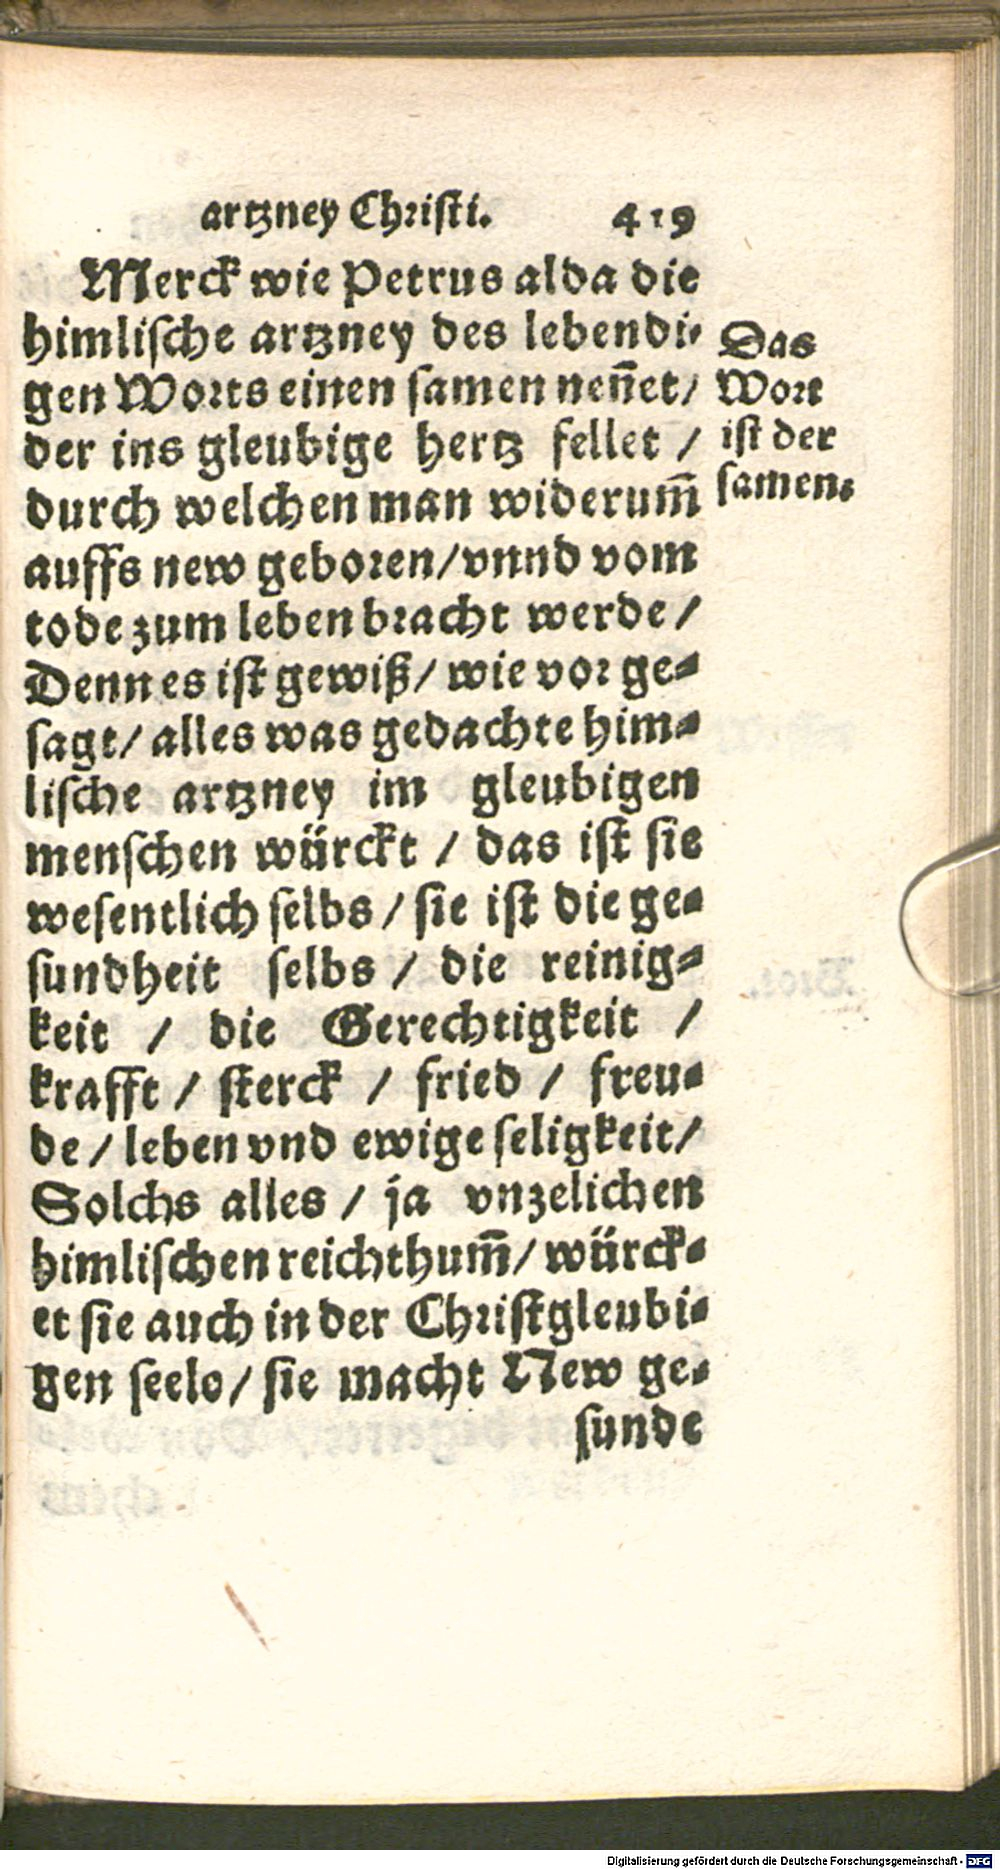 artzney Christi. 419
Merck wie Petrus alda die
himlische artzney des lebendi-
gen Worts einen samen nen̄et/
der ins gleubige hertz fellet /
durch welchen man widerum̄
auffs new geboren/vnnd vom
tode zum leben bracht werde /
Denn es ist gewiß/ wie vor ge-
sagt/ alles was gedachte him-
lische artzney im gleubigen
menschen würckt / das ist sie
wesentlich selbs / sie ist die ge-
sundheit selbs / die reinig-
keit / die Gerechtigkeit /
krafft / sterck / fried / freu-
de / leben vnd ewige seligkeit/
Solchs alles / ja vnzelichen
himlischen reichthum̄/ würck-
et sie auch in der Christgleubi-
gen seelo/ sie macht New ge-
sunde
Das
Wort
ist der
samen.
Digitalisierung gefördert durch die Deutsche Forschungsgemeinschaft - DFG